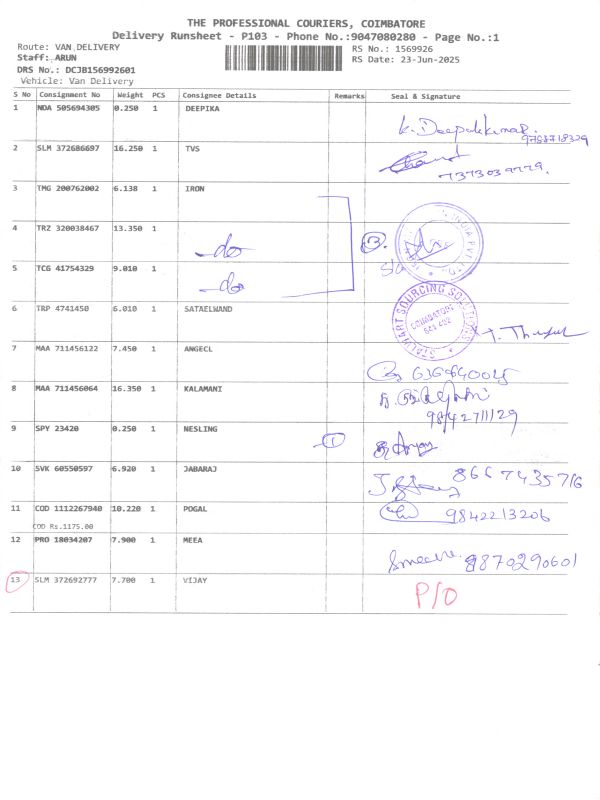 THE PROFESSIONAL COURIERS, COIMBATORE
Delivery Runsheet - P103 - Phone No.:9047080280 - Page No.:1
Route: VAN DELIVERY RS No.: 1569926
Staff: ARUN RS Date: 23-Jun-2025
DRS No.: DCJB156992601
Vehicle: Van Delivery
S No Consignment No Weight PCS Consignee Details Remarks Seal & Signature
1 NDA 505694305 0.250 1 DEEPIKA
K. Deepakkumar
2 SLM 372686697 16.250 1 TVS
7373039779.
3 TMG 200762002 6.138 1 IRON
4 TRZ 320038467 13.350 1
-do-
5 TCG 41754329 9.010 1
-do-
STALWART SOURCING SOLUTIONS
COIMBATORE
6 TRP 4741450 6.010 1 SATAELWAND
7 MAA 711456122 7.450 1 ANGECL
8 MAA 711456064 16.350 1 KALAMANI
9842711129
9 SPY 23420 0.250 1 NESLING
1
10 SVK 60550597 6.920 1 JABARAJ
8667435716
11 COD 1112267940 10.220 1 POGAL
9842213206
COD Rs.1175.00
12 PRO 18034207 7.900 1 MEEA
9870290601
13 SLM 372692777 7.700 1 VIJAY
P/O